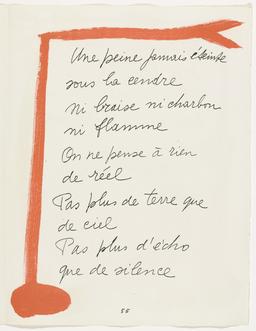 Une peine jamais éteinte
sous la cendre
ni braise ni charbon
ni flamme
On ne pense à rien
de réel
Pas plus de terre que
de ciel
Pas plus d'écho
que de silence
55